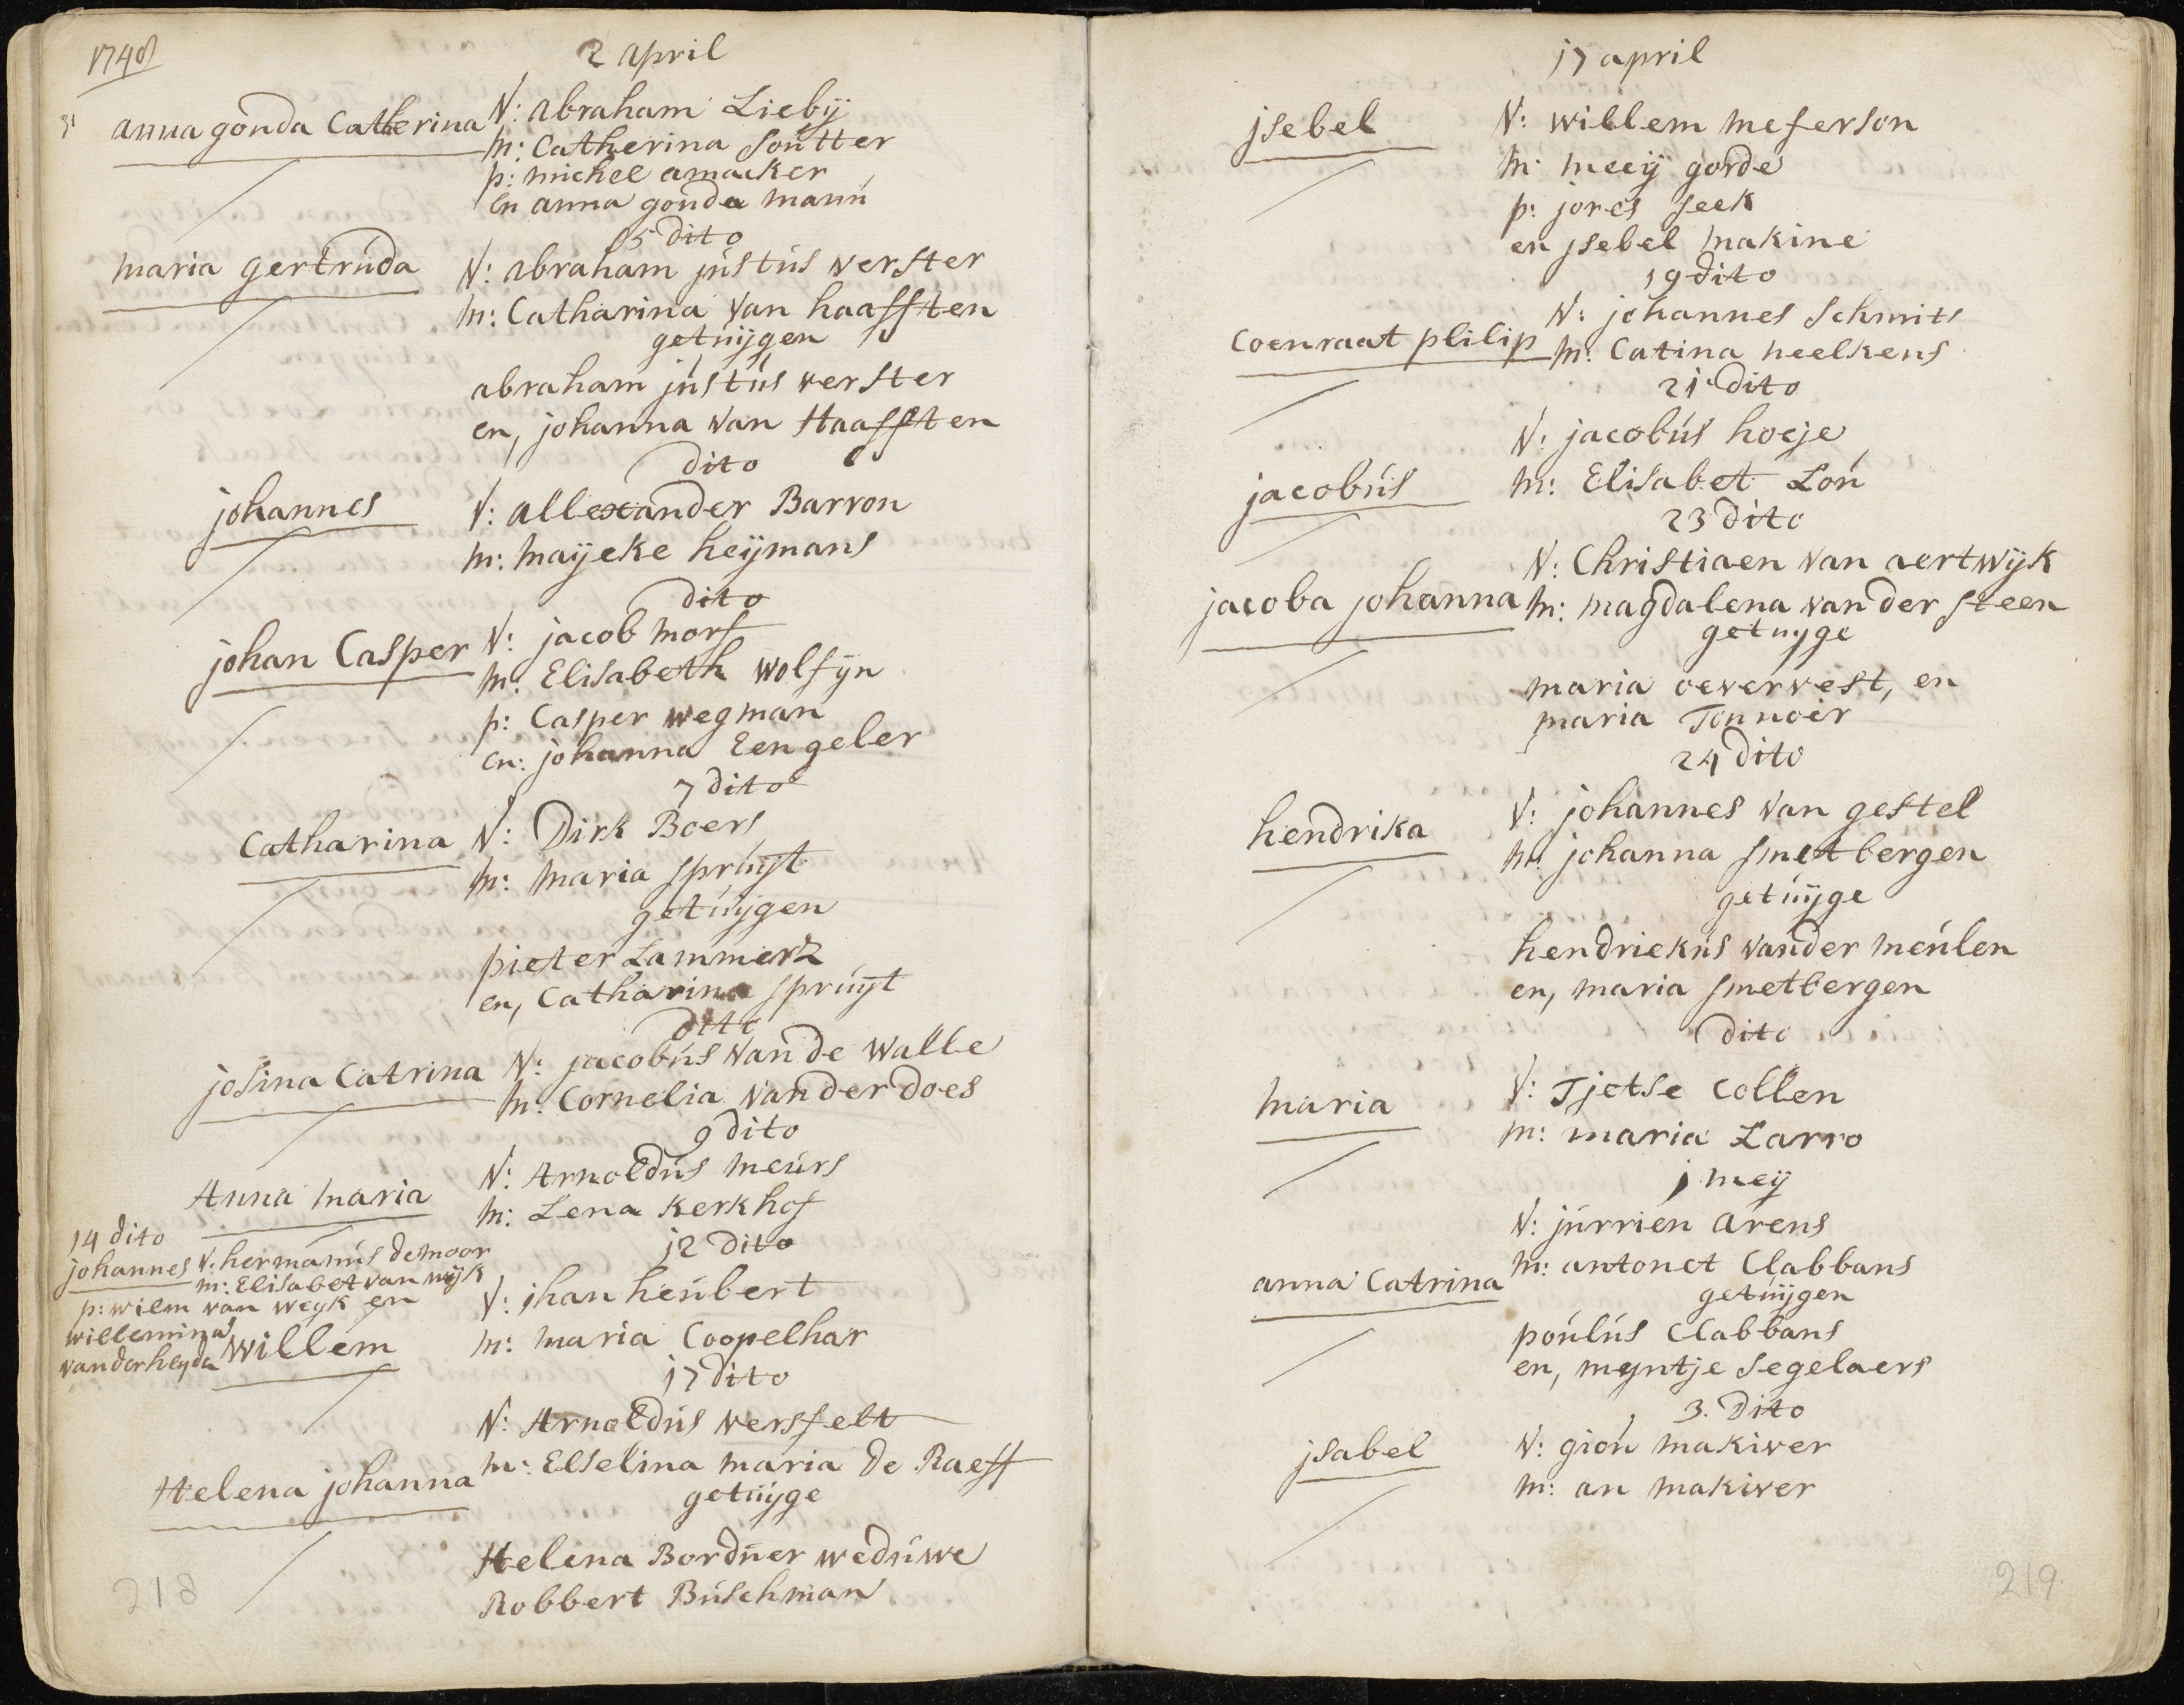 1748
2 april
31 anna gonda Catherina V: abraham Liebÿ
m: Catherina soutter
p: michel amacker
en anna gonda mann
5 dito
maria gertruda V: abraham justus verster
m: Catharina van haafften
getuijgen
abraham justus verster
en, johanna van Haafften
dito
johannes V: allexander Barron
m: maijeke heijmans
dito
johan Casper V: jacob morf
m: Elisabeth wolfijn
p: Casper wegman
en: johanna Eengeler
7 dito
Catharina V: Dirk Boers
m: maria spruijt
getuijgen
pieter Lammerz
en, Catharina spruijt
dito
josina Catrina V: jacobus van de walle
m: Cornelia van der does
9 dito
Anna maria V: Arnoldus meurs
m: Lena kerkhof
14 dito
johannes V: hermanus de moor
m: Elisabet van wijk
p: wilm van weyk en
willemina
van der heyda
12 dito
willem V: jhan heubert
m: maria Coopelhar
17 dito
V: Arnoldus versfelt
Helena johanna m: Elselina maria de Raeff
getuijge
Helena Bordner weduwe
Robbert Buschman
218
17 april
jsebel V: willem meferson
m: meeij gorde
p: jores seek
en jsebel makine
19 dito
V: johannes schmits
Coenraat plilip m: Catina neelkens
21 dito
V: jacobus hoeje
jacobus m: Elisabet Lou
23 dito
V: Christiaen van aertwijk
jacoba johanna m: magdalena van der steen
getuyge
maria oevervest, en
maria Tonnoir
24 dito
hendrika V: johannes van gestel
m: johanna smetbergen
getuijge
hendriekus vander meulen
en, maria smetbergen
dito
maria V: Tjetse Collen
m: maria Larro
j meij
V: jurrien arens
anna Catrina m: antonet Clabbans
getuijgen
poulus Clabbans
en, myntje segelaers
3. dito
jsabel V: giou makiver
m: an makiver
219